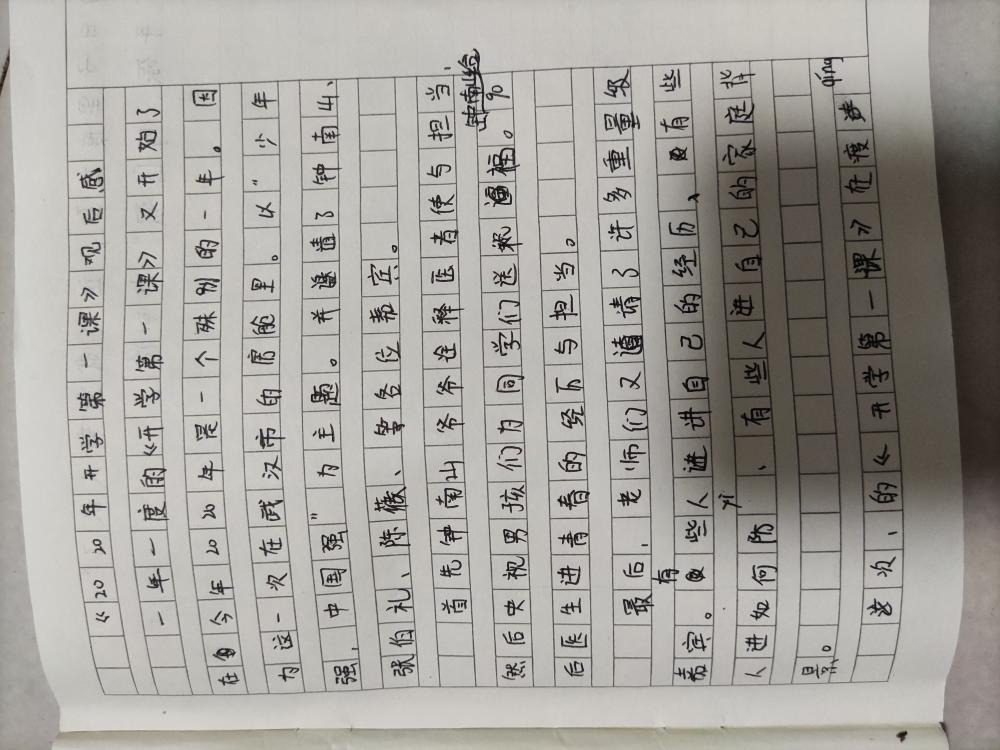 《2020年开学第一课》观后感
一年一度的《开学第一课》又开始了
在今年2020年是一个殊别的一年。因
为这一次在武汉市的方舱里。以“少年
强,中国强”为主题。并邀请了钟南山、
张伯礼、陈薇、等各位嘉宾。
首先钟南山爷爷诠释医者使与担当,
然后央视男孩们为同学们送祝福。
90
后医生进青春的经历与担当。
最后,老师们又请了许多重量级
嘉宾。有些人进讲自己的经历、有些
人进如何防、有些人进自己的家庭背
yi
景。
这次,的《开学第一课》在疫
qing